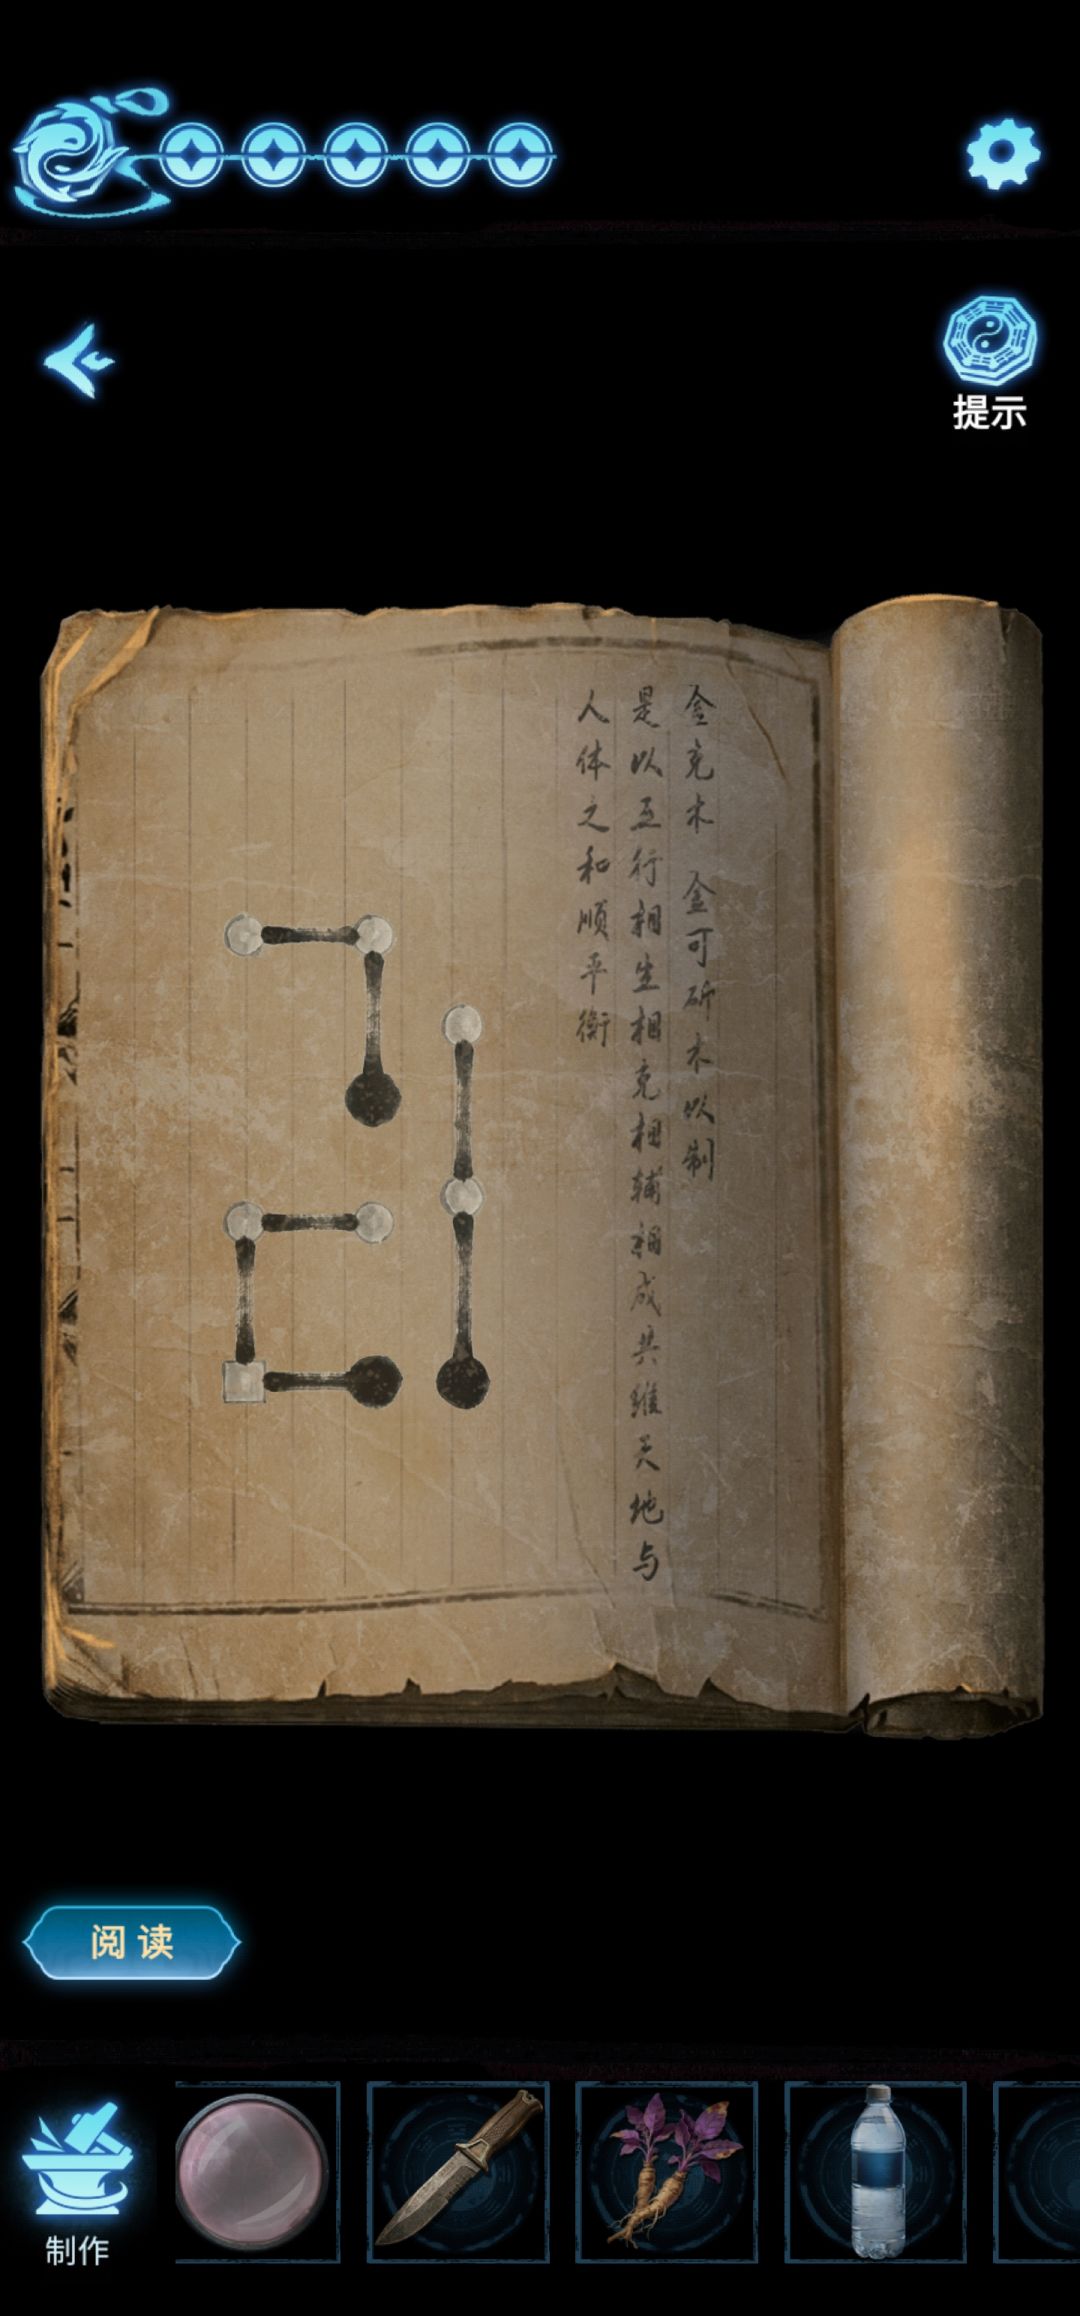 提示
金克木 金可斫木以制
是以五行相生相克相辅相成共维天地与
人体之和顺平衡
阅读
制作